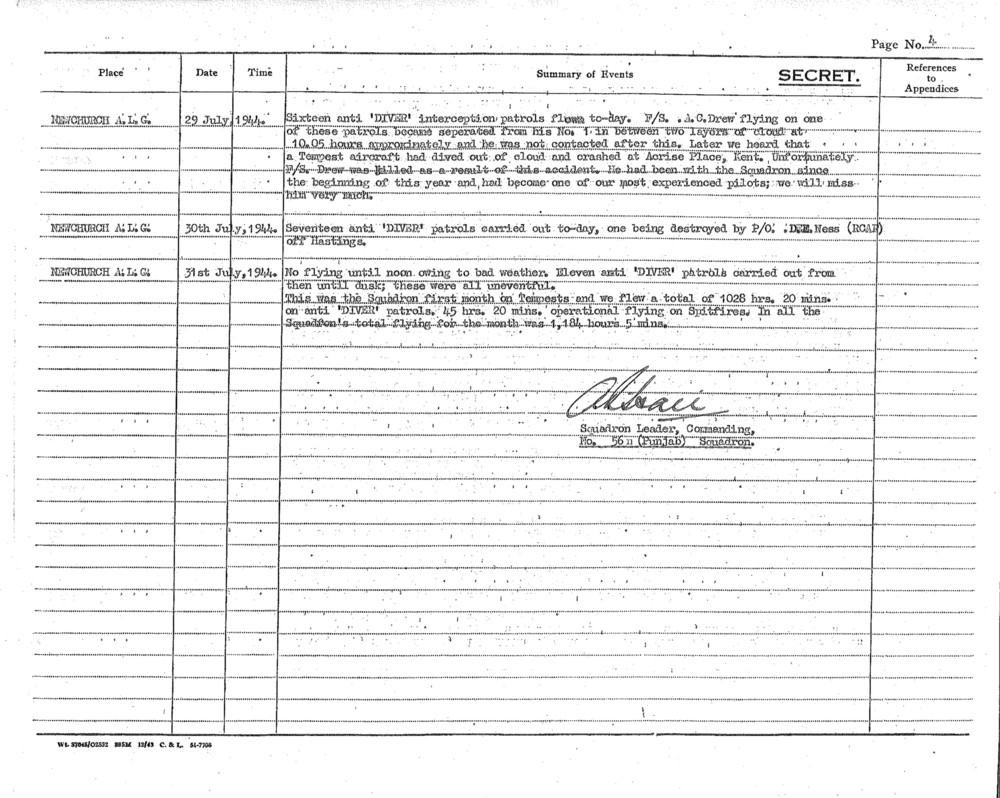 Page No. 4
Place Date Time Summary of Events SECRET. References
to
Appendices
NEWCHURCH A.L.G. 29 July, 1944. Sixteen anti 'DIVER' interception patrols flown to-day. F/S. A.C.Drew flying on one
of these patrols became seperated from his No. 1 in between two layers of cloud at
10.05 hours approximately and he was not contacted after this. Later we heard that
a Tempest aircraft had dived out of cloud and crashed at Acrise Place, Kent. Unfortunately
F/S. Drew was killed as a result of this accident. He had been with the Squadron since
the beginning of this year and had become one of our most experienced pilots; we will miss
him very much.
NEWCHURCH A.L.G. 30th July, 1944. Seventeen anti 'DIVER' patrols carried out to-day, one being destroyed by P/O. D.E. Ness (RCAF)
off Hastings.
NEWCHURCH A.L.G. 31st July, 1944. No flying until noon owing to bad weather. Eleven anti 'DIVER' patrols carried out from
then until dusk; these were all uneventful.
This was the Squadron first month on Tempests and we flew a total of 1028 hrs. 20 mins.
on anti 'DIVER' patrols. 45 hrs. 20 mins. operational flying on Spitfires. In all the
Squadron's total flying for the month was 1,184 hours 5 mins.
Squadron Leader, Commanding,
No. 56 (Punjab) Squadron.
Wt. 37045/O2532 885M 12/43 C. & L. 51-7706